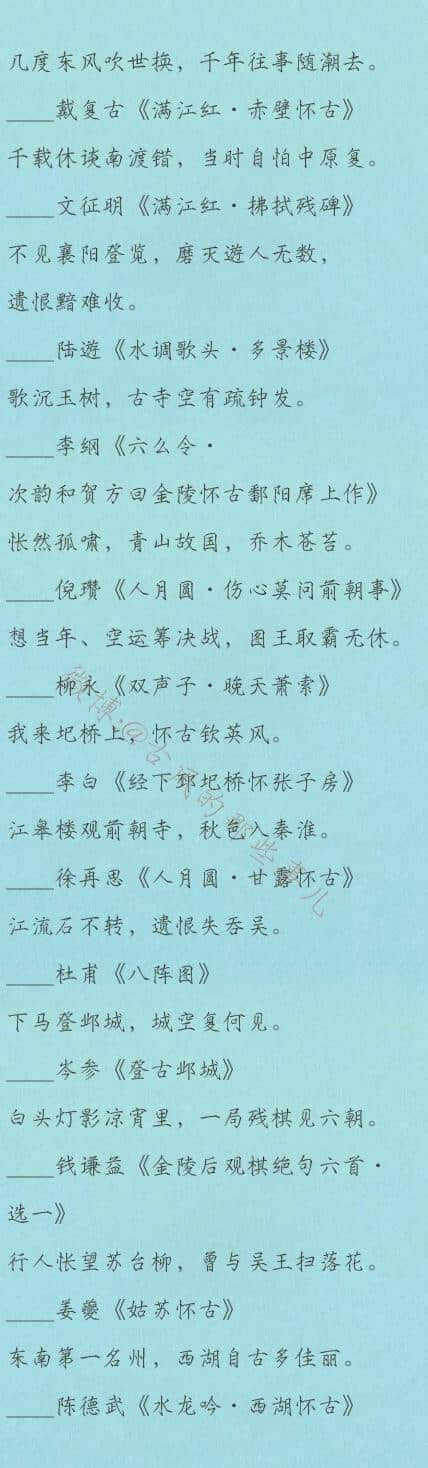 几度东风吹世换，千年往事随潮去。
____戴复古《满江红·赤壁怀古》
千载休谈南渡错，当时自怕中原复。
____文征明《满江红·拂拭残碑》
不见襄阳登览，磨灭遊人无数，
遗恨黯难收。
____陆遊《水调歌头·多景楼》
歌沉玉树，古寺空有疏钟发。
____李纲《六么令·
次韵和贺方回金陵怀古鄱阳席上作》
怅然孤啸，青山故国，乔木苍苔。
____倪瓒《人月圆·伤心莫问前朝事》
想当年、空运筹决战，图王取霸无休。
____柳永《双声子·晚天萧索》
我来圯桥上，怀古钦英风。
____李白《经下邳圯桥怀张子房》
江皋楼观前朝寺，秋色入秦淮。
____徐再思《人月圆·甘露怀古》
江流石不转，遗恨失吞吴。
____杜甫《八阵图》
下马登邺城，城空复何见。
____岑参《登古邺城》
白头灯影凉宵里，一局残棋见六朝。
____钱谦益《金陵后观棋绝句六首·
选一》
行人怅望苏台柳，曾与吴王扫落花。
____姜夔《姑苏怀古》
东南第一名州，西湖自古多佳丽。
____陈德武《水龙吟·西湖怀古》
微博:@古风的那些事儿